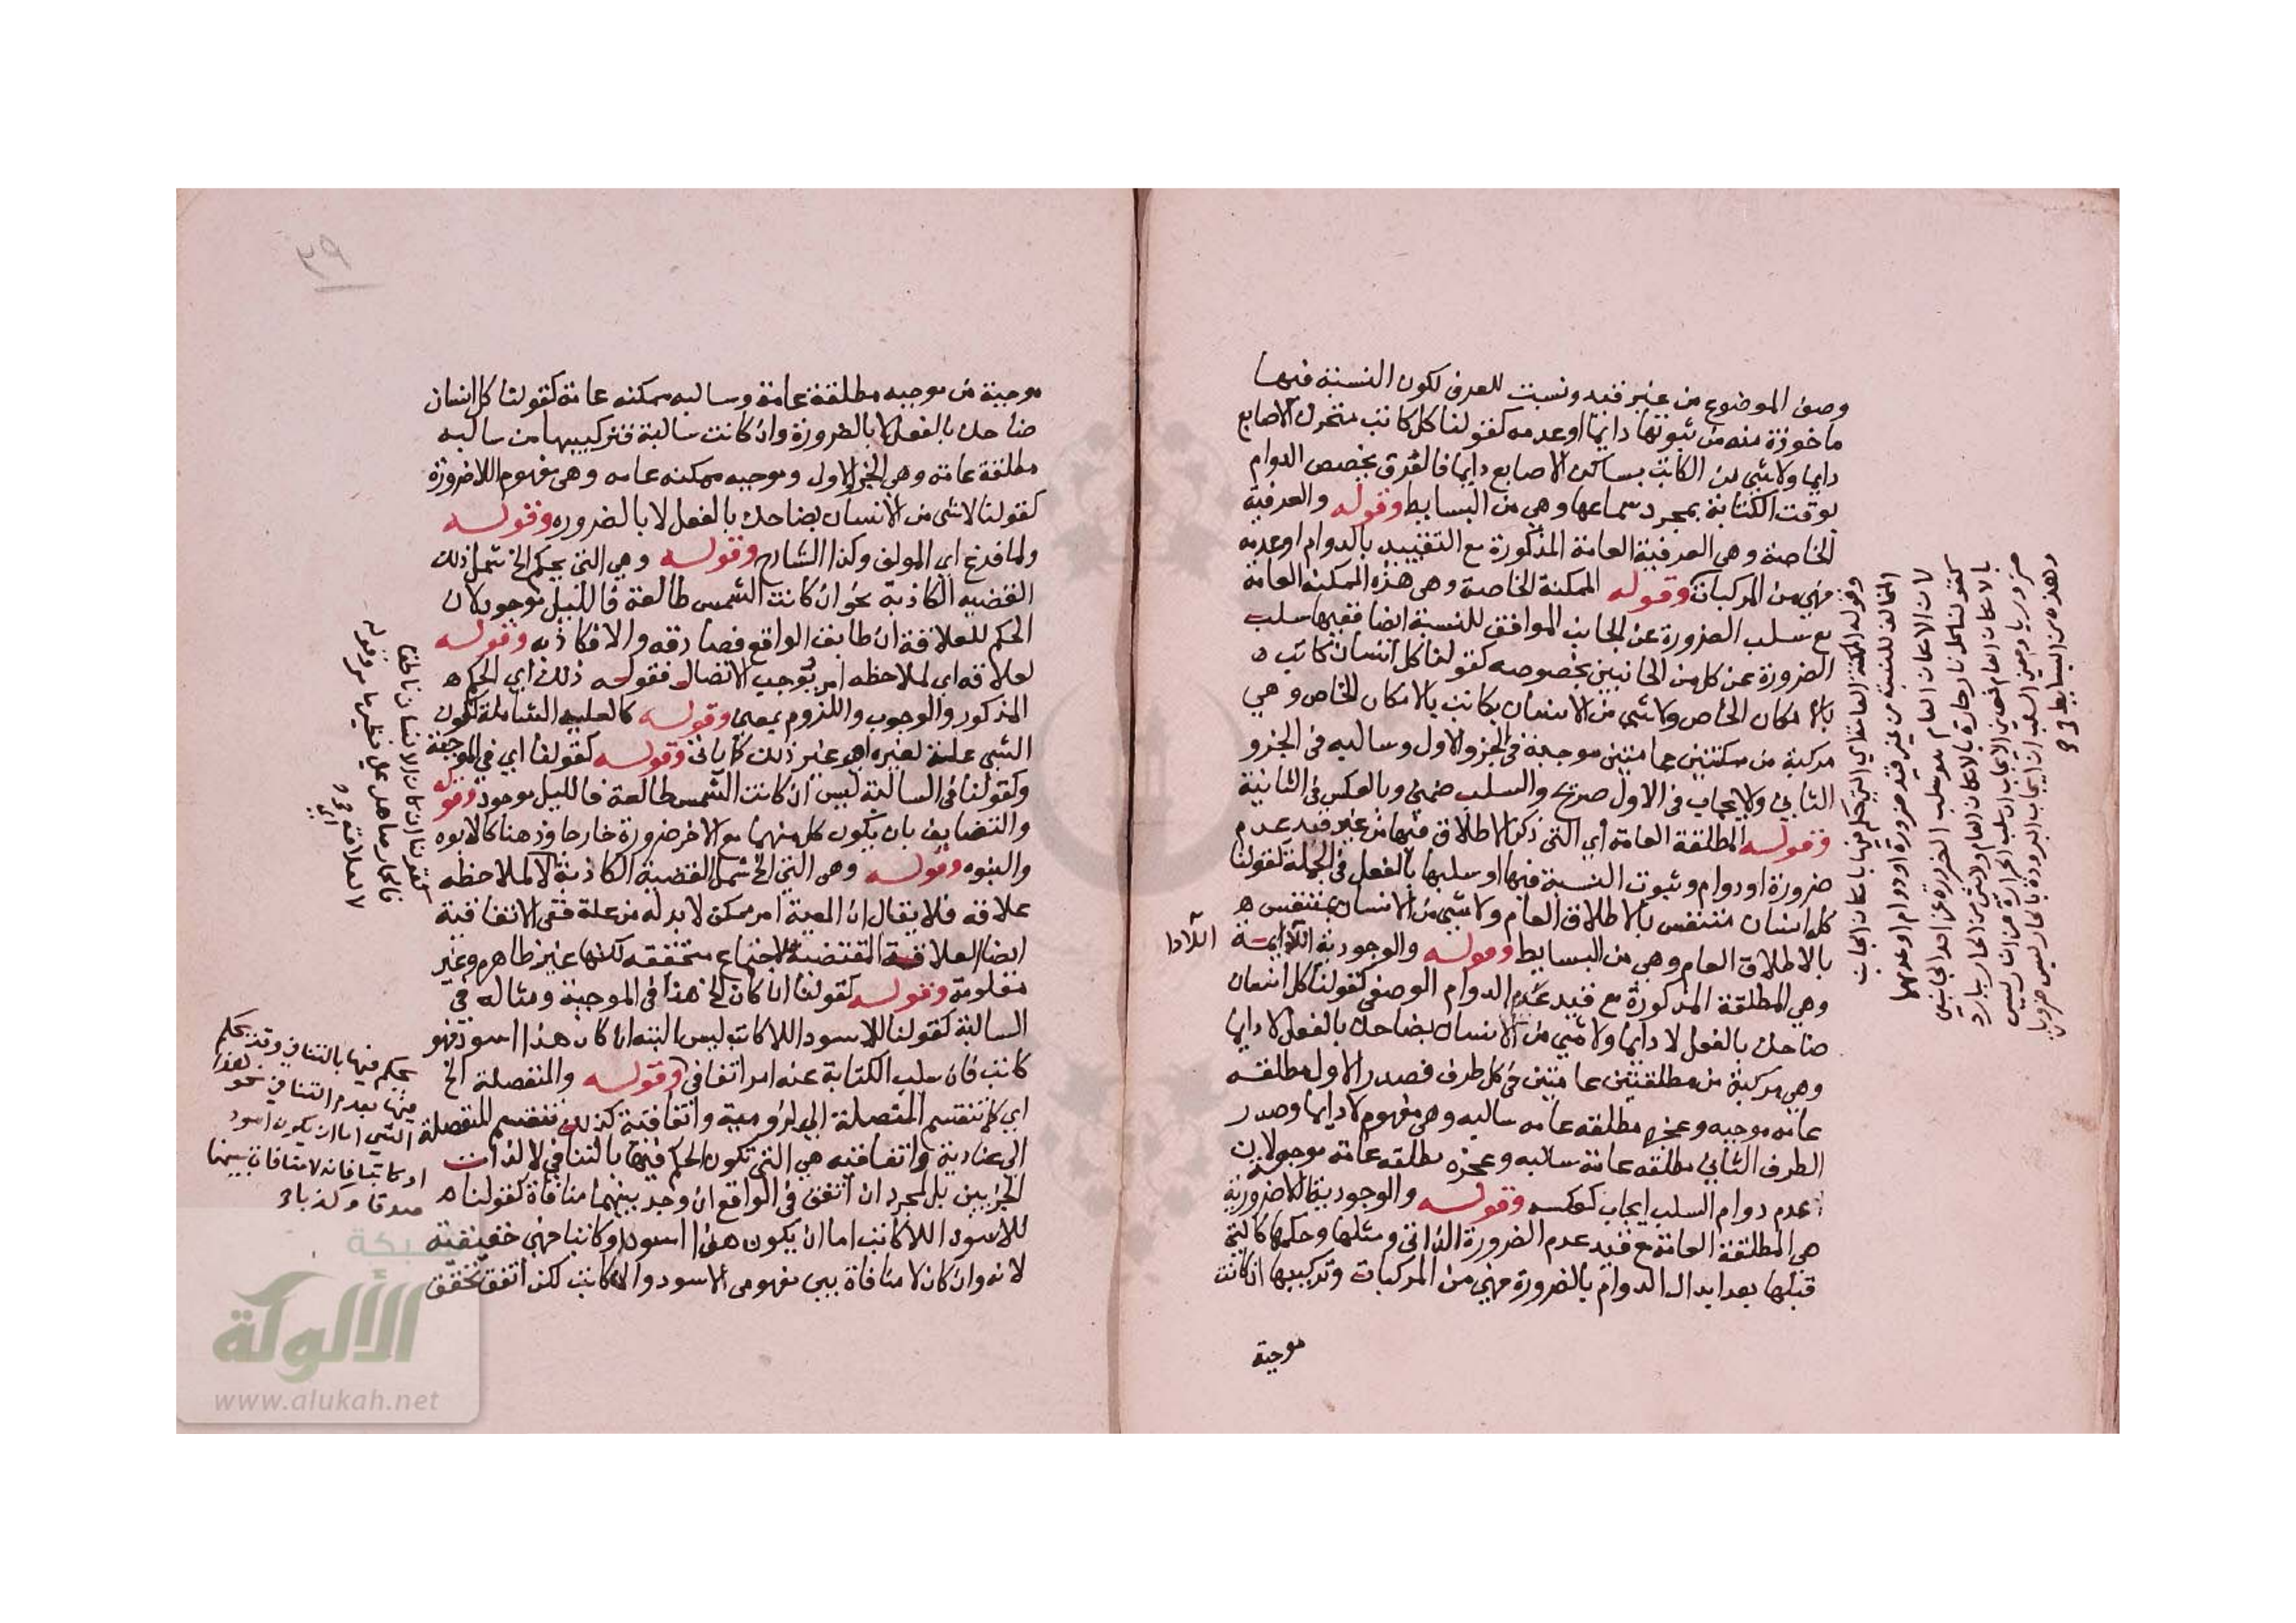 وصف الموضوع من غير قيد ونسبت للعرف لكون النسبة فيها
ماخوذة منه من ثبوتها دايما او عدمه كقولنا كل كاتب متحرك الاصابع
دايما ولا شي من الكاتب بساكن الاصابع دايما فالفرق بخصص الدوام
بوقت الكتابة بمجرد سماعها وهي من البسايط وقوله والعرفية
الخاصة وهي العرفية العامة المذكورة مع التقييد بالدوام او عدمه
فهي من المركبات وقوله الممكنة الخاصة وهي هذه الممكنة العامة
مع سلب الضرورة عن الجانب الموافق للنسبة ايضا ففيها سلب
الضرورة عن كل من الجانبين بخصوصه كقولنا كل انسان كاتب ه
بالامكان الخاص ولا شي من الانسان بكاتب بالامكان الخاص وهي
مركبة من ممكنتين عامتين موجبة في الجزو الاول وسالبه في الجزو
الثاني والايجاب في الاول صريح والسلب ضمني وبالعكس في الثانية
وقوله المطلقة العامة اي التي ذكر الاطلاق فيها من غير قيد عدم
ضرورة او دوام وثبوت النسبة فيها او سلبها بالفعل في الجملة كقولنا
كل انسان متنفس بالاطلاق العام ولا شي من الانسان بمتنفس ه
بالاطلاق العام وهي من البسايط وقوله والوجودية اللادايمة
وهي المطلقة المذكورة مع قيد عدم الدوام الوصفي كقولنا كل انسان
ضاحك بالفعل لا دايما ولا شي من الانسان بضاحك بالفعل لا دايما
وهي مركبة من مطلقتين عامتين في كل طرف فصدر الاول مطلقه
عامه موجبه وعجزه مطلقه عامه سالبه وهي مفهوم لا دايما وصدر
الطرف الثاني مطلقه عامة سالبه وعجزه مطلقه عامة موجبة لان
عدم دوام السلب ايجاب كعكسه وقوله والوجودية اللاضرورية
هي المطلقة العامة مع قيد عدم الضرورة الذاتي ومثلها وحكمها كالتي
قبلها بعد ابدال الدوام بالضرورة فهي من المركبات وتركيبها ان كانت
موجبة
اللادا
وقوله الممكنة العامة اي التي حكم فيها بامكان الجانب
المخالف للنسبة من غير قيد ضرورة او دوام او عدمهما
لان الامكان العام هو سلب الضرورة عن احد الجانبين
كقولنا كل نار حارة بالامكان العام ولا شي من الحار ببارد
بالامكان العام فمعنى الايجاب ان سلب الحرارة عن النار ليس
ضروريا ومعنى السلب ان ايجاب البرودة بالحار ليس ضروريا
وهذه من البسايط
٢٩
موجبة من موجبه مطلقة عامة وسالبه ممكنه عامة كقولنا كل انسان
ضاحك بالفعل لا بالضرورة وان كانت سالبة فتركيبها من سالبه
مطلقة عامة وهي الجزو الاول وموجبه ممكنه عامه وهي مفهوم اللاضرورة
كقولنا لا شي من الانسان بضاحك بالفعل لا بالضروره وقوله
ولما فرغ اي المولف وكذا الشارح وقوله وهي التي يحكم الخ شمل ذلك
القضيه الكاذبة نحو ان كانت الشمس طالعة فالليل موجود لان
الحكم للعلاقة ان طابق الواقع فصادقه والا فكاذبه وقوله
لعلاقه اي لملاحظه امر يوجب الاتصال فقوله ذلك اي الحكم ه
المذكور والوجوب واللزوم بمعنى وقوله كالعليه الشاملة لكون
الشي علة لغيره او غير ذلك كما ياتي وقوله كقولنا اي في الموجبة
وكقولنا في السالبة ليس ان كانت الشمس طالعة فالليل موجود وقوله
والتضايف بان يكون كل منهما مع الاخر ضرورة خارجا وذهنا كالابوه
والبنوه وقوله وهي التي الخ شمل القضية الكاذبة لا لملاحظه
علاقه فلا يقال ان المعية امر ممكن لا بد له من علة ففي الاتفاقية
ايضا العلاقية المقتضية للاجتماع متحققه لكنها غير ظاهره وغير
معلومة وقوله كقولنا ان كان الخ هذا في الموجبة ومثاله في
السالبة كقولنا للاسود اللاكاتب ليس البته ان كان هذا اسود فهو
كاتب فان سلب الكتابة عنه امر اتفاقي وقوله والمنفصلة الخ
اي كما تنقسم المتصلة الي لزومية واتفاقية كذلك تنقسم المنفصلة
الى عنادية واتفاقيه هي التي تكون الحكم فيها بالتنافي لا لذات
الجزيين بل لمجرد ان اتفق في الواقع ان وجد بينهما منافاة كقولنا ه
للاسود اللاكاتب اما ان يكون هذا اسود او كاتبا فهي حقيقية
لانه وان كان لا منافاة بين مفهومى الاسود والكاتب لكن اتفق تحقق
كقولنا ان كان الانسان ناطقا
فالحمار صاهل علي نظير ما مر وقوله
لا لعلاقة
يحكم فيها بالتنافي وقد يحكم
فيها بعدم التنافي نحو هذا
الشي اما ان يكون اسود
او كاتبا فانه لا منافاة بينهما
صدقا وكذبا
شبكة
الألوكة
www.alukah.net